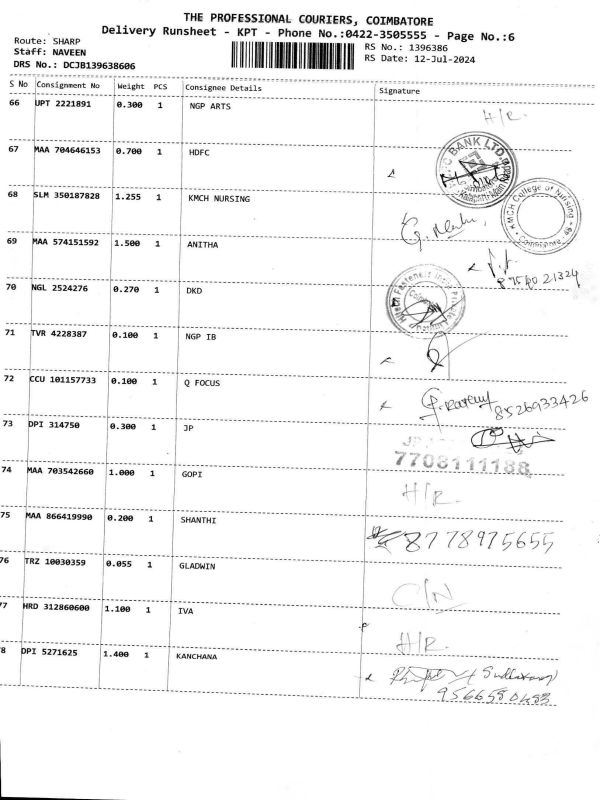 THE PROFESSIONAL COURIERS, COIMBATORE
Delivery Runsheet - KPT - Phone No.:0422-3505555 - Page No.:6
Route: SHARP
Staff: NAVEEN
DRS No.: DCJB139638606
RS No.: 1396386
RS Date: 12-Jul-2024
S No Consignment No Weight PCS Consignee Details Signature
66 UPT 2221891 0.300 1 NGP ARTS H/R.
67 MAA 704646153 0.700 1 HDFC
BANK LTD
68 SLM 350187828 1.255 1 KMCH NURSING
KMCH College of Nursing
Coimbatore
69 MAA 574151592 1.500 1 ANITHA
70 NGL 2524276 0.270 1 DKD
71 TVR 4228387 0.100 1 NGP IB
72 CCU 101157733 0.100 1 Q FOCUS
8526933426
73 DPI 314750 0.300 1 JP
7708111188
74 MAA 703542660 1.000 1 GOPI H/R.
75 MAA 866419990 0.200 1 SHANTHI 8778975655
76 TRZ 10030359 0.055 1 GLADWIN C/N
77 HRD 312860600 1.100 1 IVA H/R.
78 DPI 5271625 1.400 1 KANCHANA